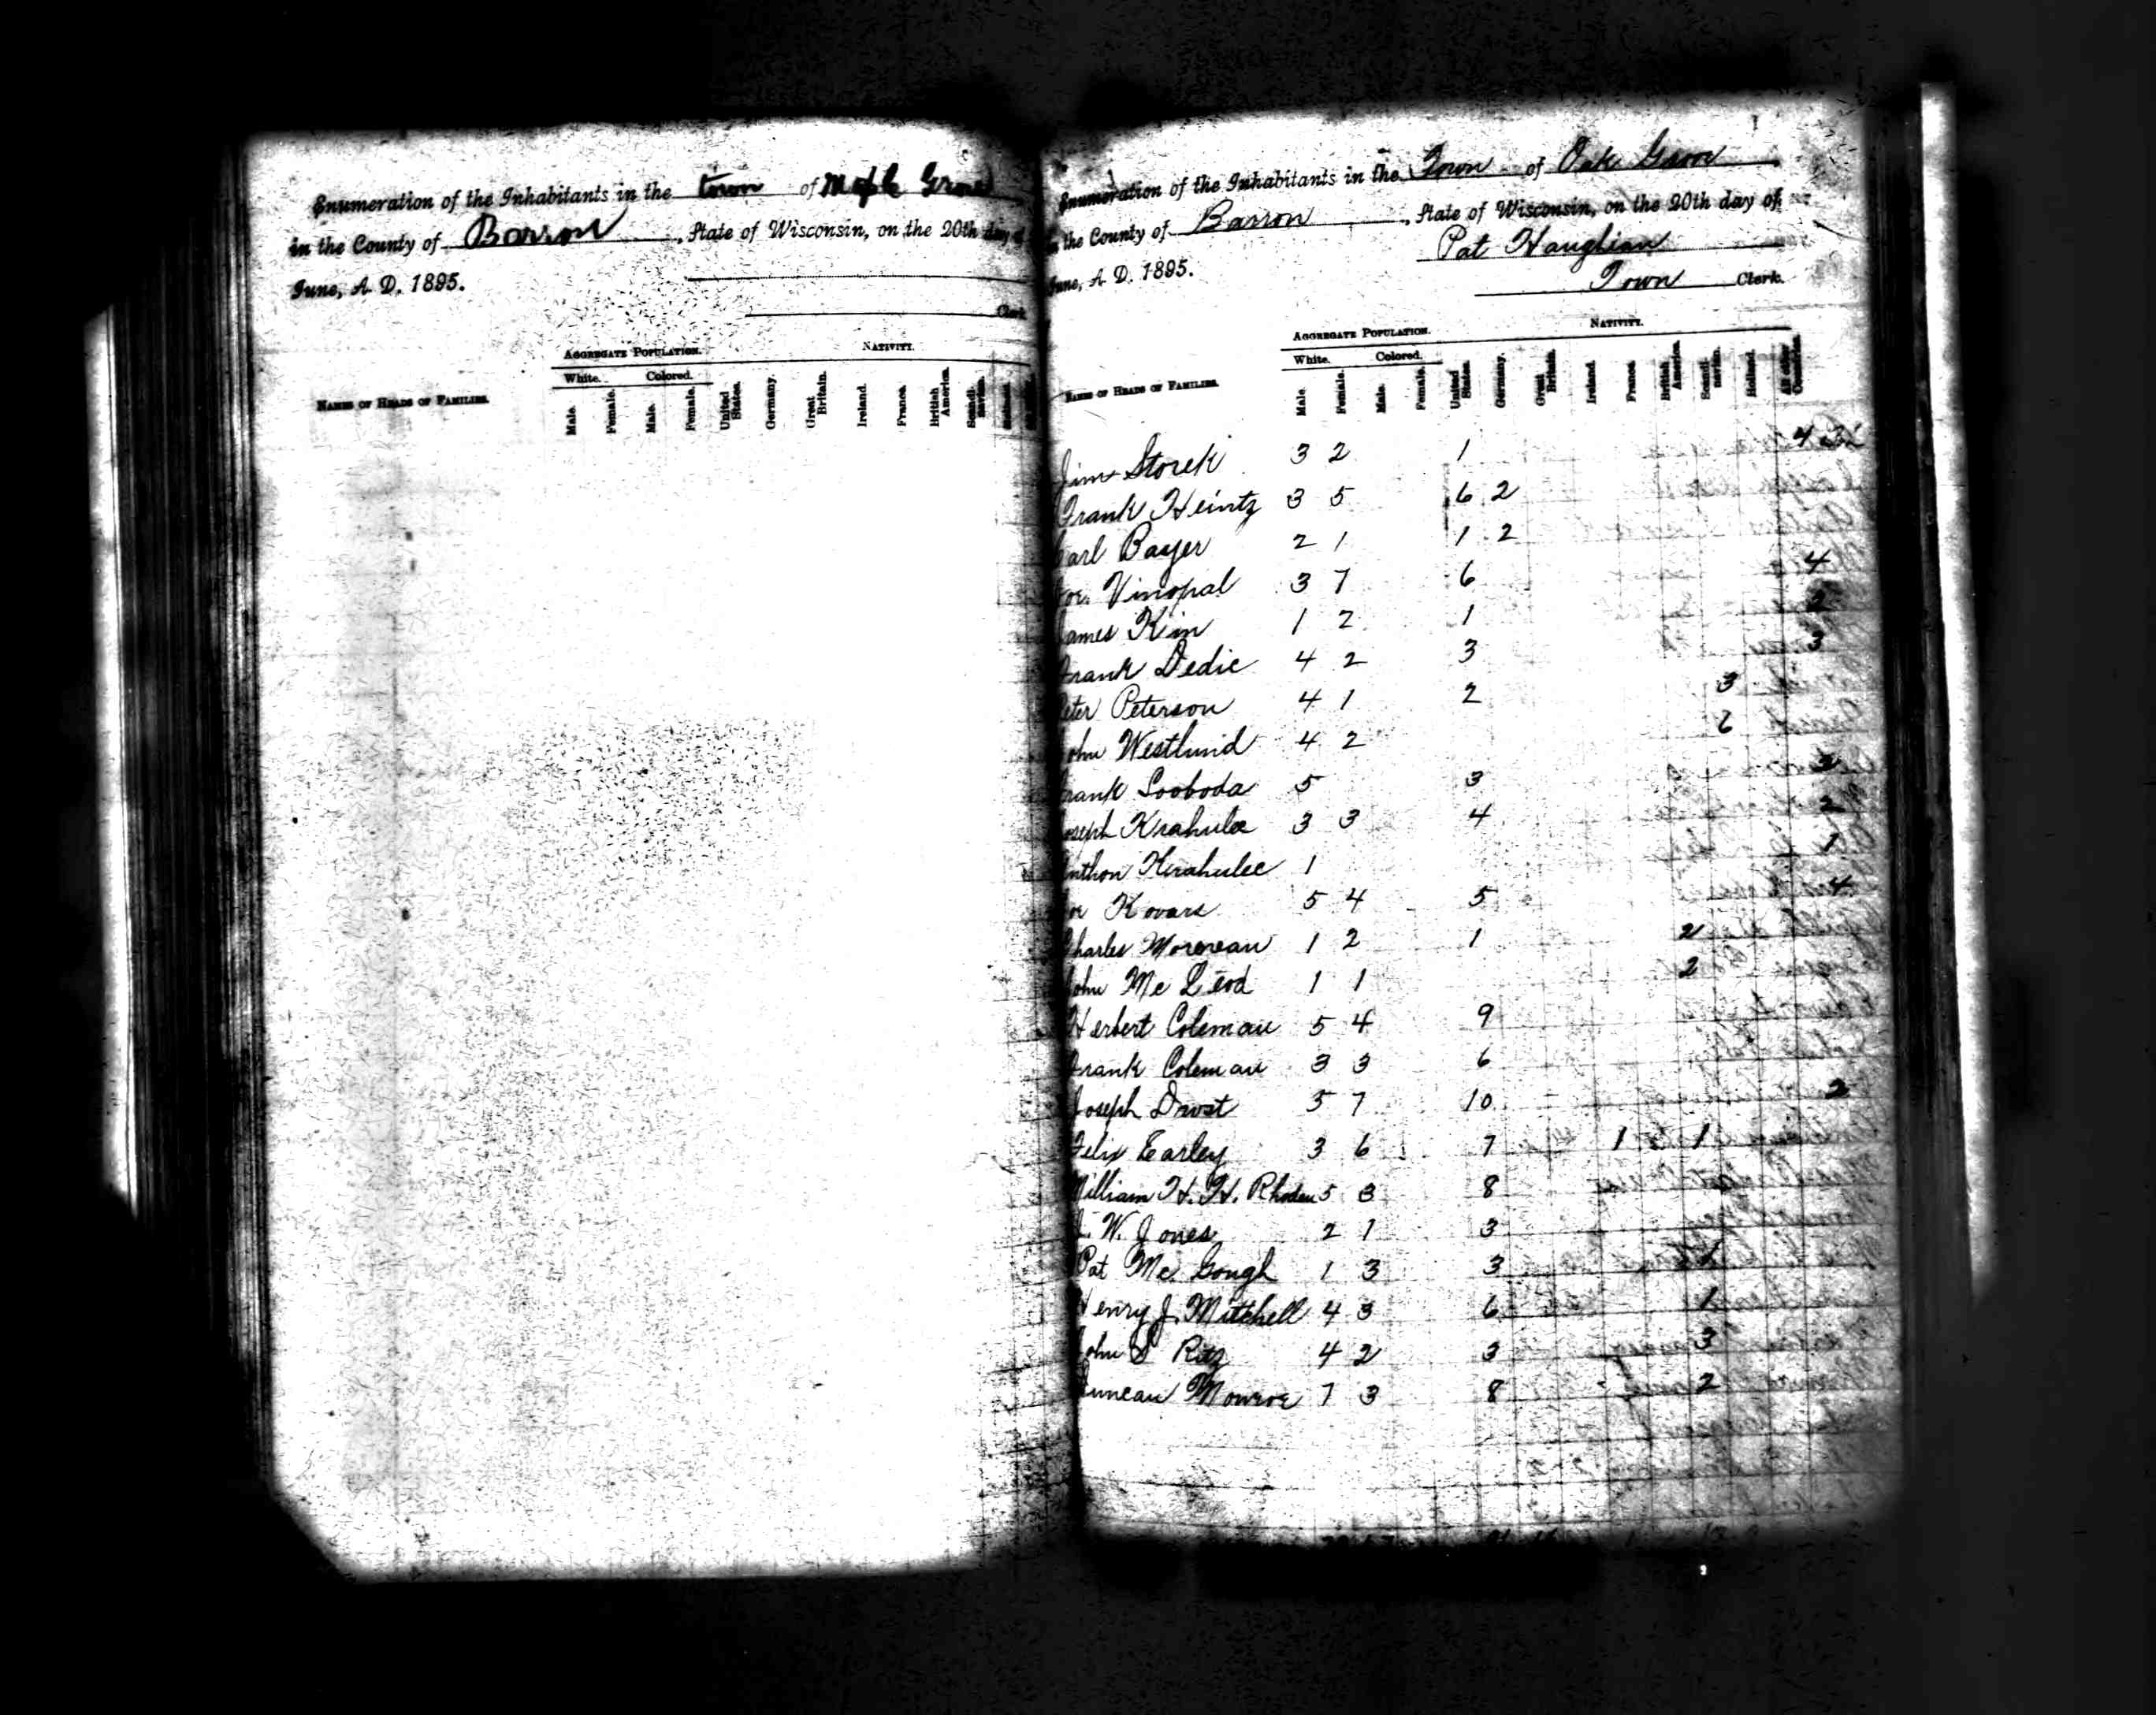 Enumeration of the Inhabitants in the town of Maple Grove
in the County of Barron, State of Wisconsin, on the 20th day of
June, A. D. 1895.
Clerk
AGGREGATE POPULATION. NATIVITY.
White. Colored.
NAMES OF HEADS OF FAMILIES. Male. Female. Male. Female. United States. Germany. Great Britain. Ireland. France. British America. Scandinavian.
Enumeration of the Inhabitants in the Town of Oak Grove
in the County of Barron, State of Wisconsin, on the 20th day of
June, A. D. 1895. Pat Haughian
Town Clerk.
AGGREGATE POPULATION. NATIVITY.
White. Colored.
NAMES OF HEADS OF FAMILIES. Male. Female. Male. Female. United States. Germany. Great Britain. Ireland. France. British America. Scandinavian. Holland. All other Countries.
Jim Storek 3 2 1 4
Frank Heintz 3 5 6 2
Carl Bayer 2 1 1 2
Joe. Vinopal 3 7 6 4
James Kin 1 2 1 2
Frank Dedic 4 2 3 3
Peter Peterson 4 1 2 3
John Westlund 4 2 6
Frank Sooboda 5 3 2
Joseph Krahulec 3 3 4 2
Anthon Krahulec 1 1
Joe Kovars 5 4 5 4
Charles Morereau 1 2 1 2
John Mc Leod 1 1 2
Herbert Coleman 5 4 9
Frank Coleman 3 3 6
Joseph Drost 5 7 10 2
Felix Earley 3 6 7 1 1
William H. H. Rhoden 5 3 8
W. Jones 2 1 3
Pat Mc Gough 1 3 3 1
Henry J. Mitchell 4 3 6 1
John S Ritz 4 2 3 3
Duncan Monroe 7 3 8 2